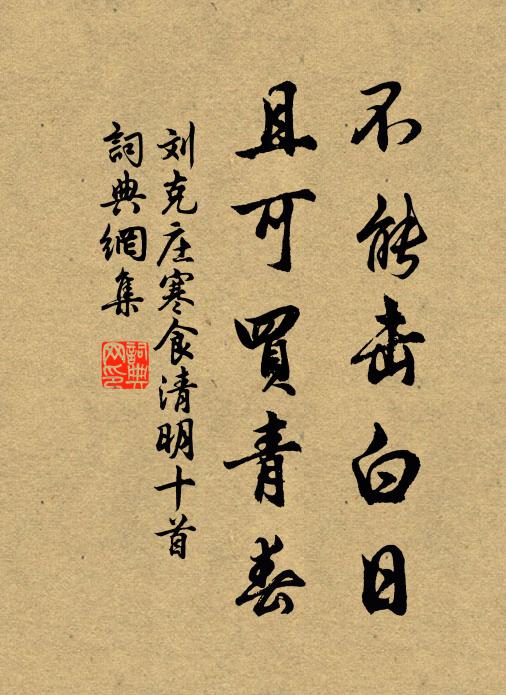 不能击白日
且可買青春
刘克庄寒食清明十首
詞典網集
詞典
网印